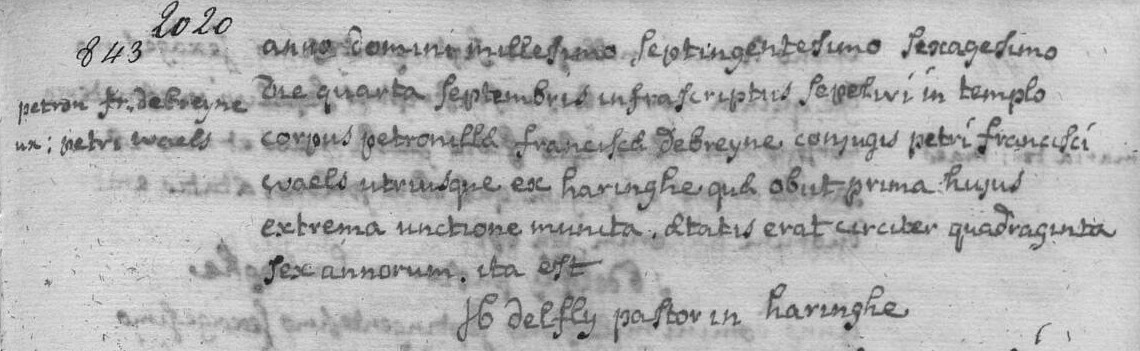 2020
843
petron fr. debreyne
ux: petri waels
anno domini millesimo septingentesimo sexagesimo
die quarta septembris infrascriptus sepelivi in templo
corpus petronillæ franciscæ debreyne conjugis petri francisci
waels utriusque ex haringhe quæ obiit prima hujus
extrema unctione munita. ætatis erat circiter quadraginta
sex annorum. ita est
delfly pastor in haringhe